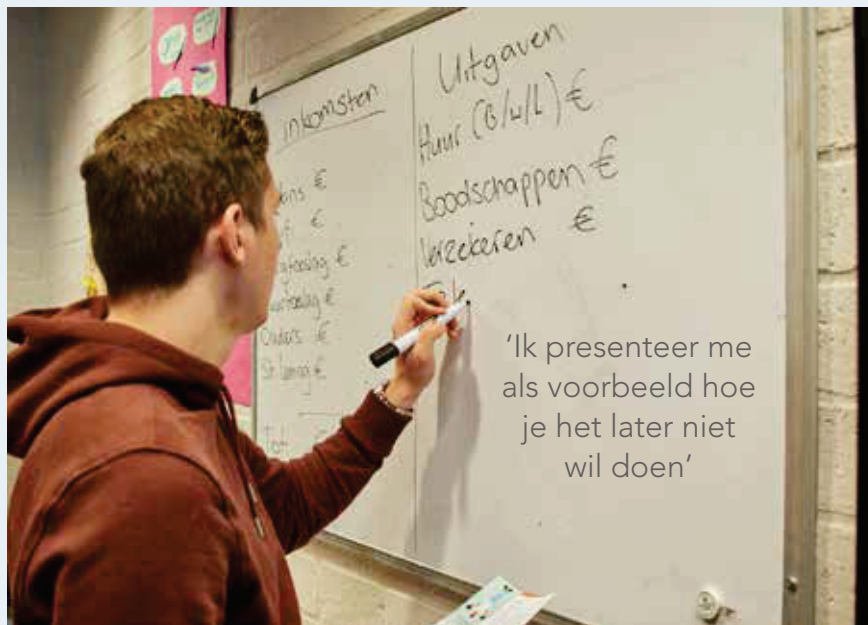 inkomsten
€
€
€
€
Ouders €
€
Tot
Uitgaven
Huur (G/W/L) €
Boodschappen €
Verzekeren €
'Ik presenteer me
als voorbeeld hoe
je het later niet
wil doen'